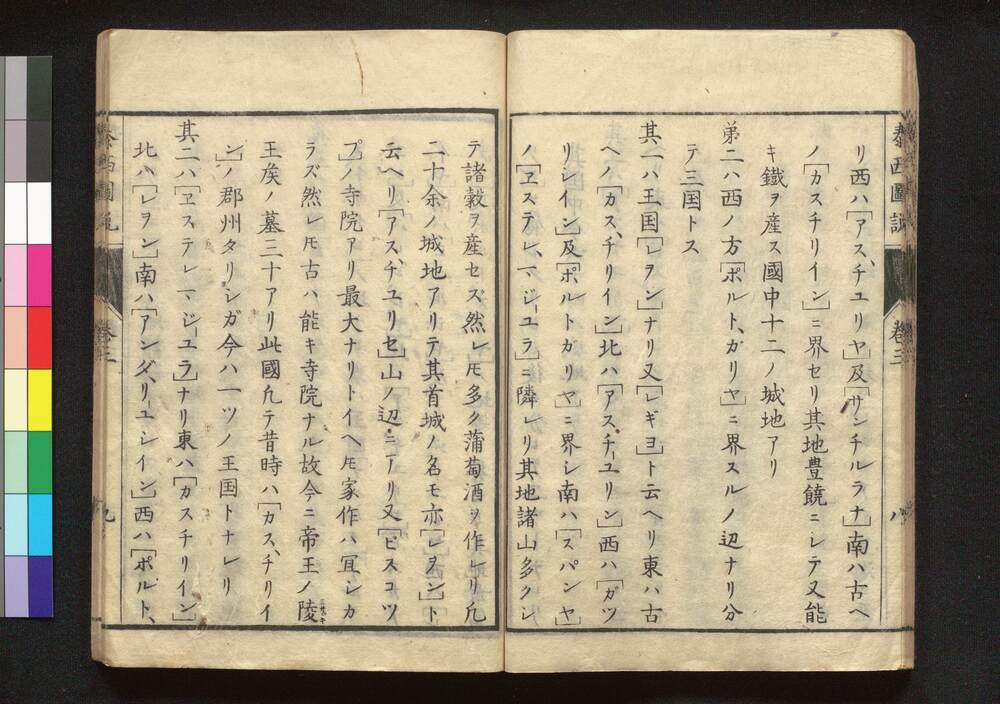 泰西圖説
卷三
八
リ西ハ[アスヽチユリヤ]及[サンチルラナ]南ハ古ヘ
ノ[カスチリイン]ニ界セリ其地豊饒ニシテ又能
キ鐵ヲ産ス國中十二ノ城地アリ
弟二ハ西ノ方[ポルトヽガリヤ]ニ界スルノ辺ナリ分
テ三国トス
其一ハ王国[レヲン]ナリ又[レギヨ]ト云ヘリ東ハ古
ヘノ[カスヽチリイン]北ハ[アスチーユリン]西ハ[ガツ
リシイン]及[ポルトガリヤ]ニ界シ南ハ[スパンヤ]
ノ[ヱステレヽマジーユラ]ニ隣レリ其地諸山多クシ
テ諸穀ヲ産セズ然レ𪜈多ク蒲萄酒ヲ作レリ凢
二十余ノ城地アリテ其首城ノ名モ亦[レヲン]ト
云ヘリ[アスヽチユリセ]山ノ辺ニーリ又[ビスコツ
プ]ノ寺院アリ最大ナリトイヘ𪜈家作ハ冝シカ
ラズ然レ𪜈古ハ能キ寺院ナル故今ニ帝王ノ陵
王矦ノ墓三十アリ此國凢テ昔時ハ[カスヽチリイ
ン]ノ郡州タリシガ今ハ一ツノ王国トナレリ
其二ハ[ヱステレマジーユラ]ナリ東ハ[カスチリイン]
北ハ[レヲン]南ハ[アンダヽリユシイン]西ハ[ポルトヽ
泰西圖説
卷三
九